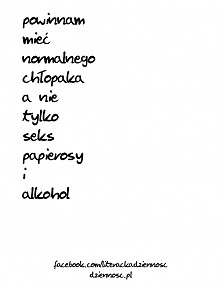 powinnam
mieć
normalnego
chłopaka
a nie
tylko
seks
papierosy
i
alkohol
facebook.com/literackadziennosc
dziennosc.pl